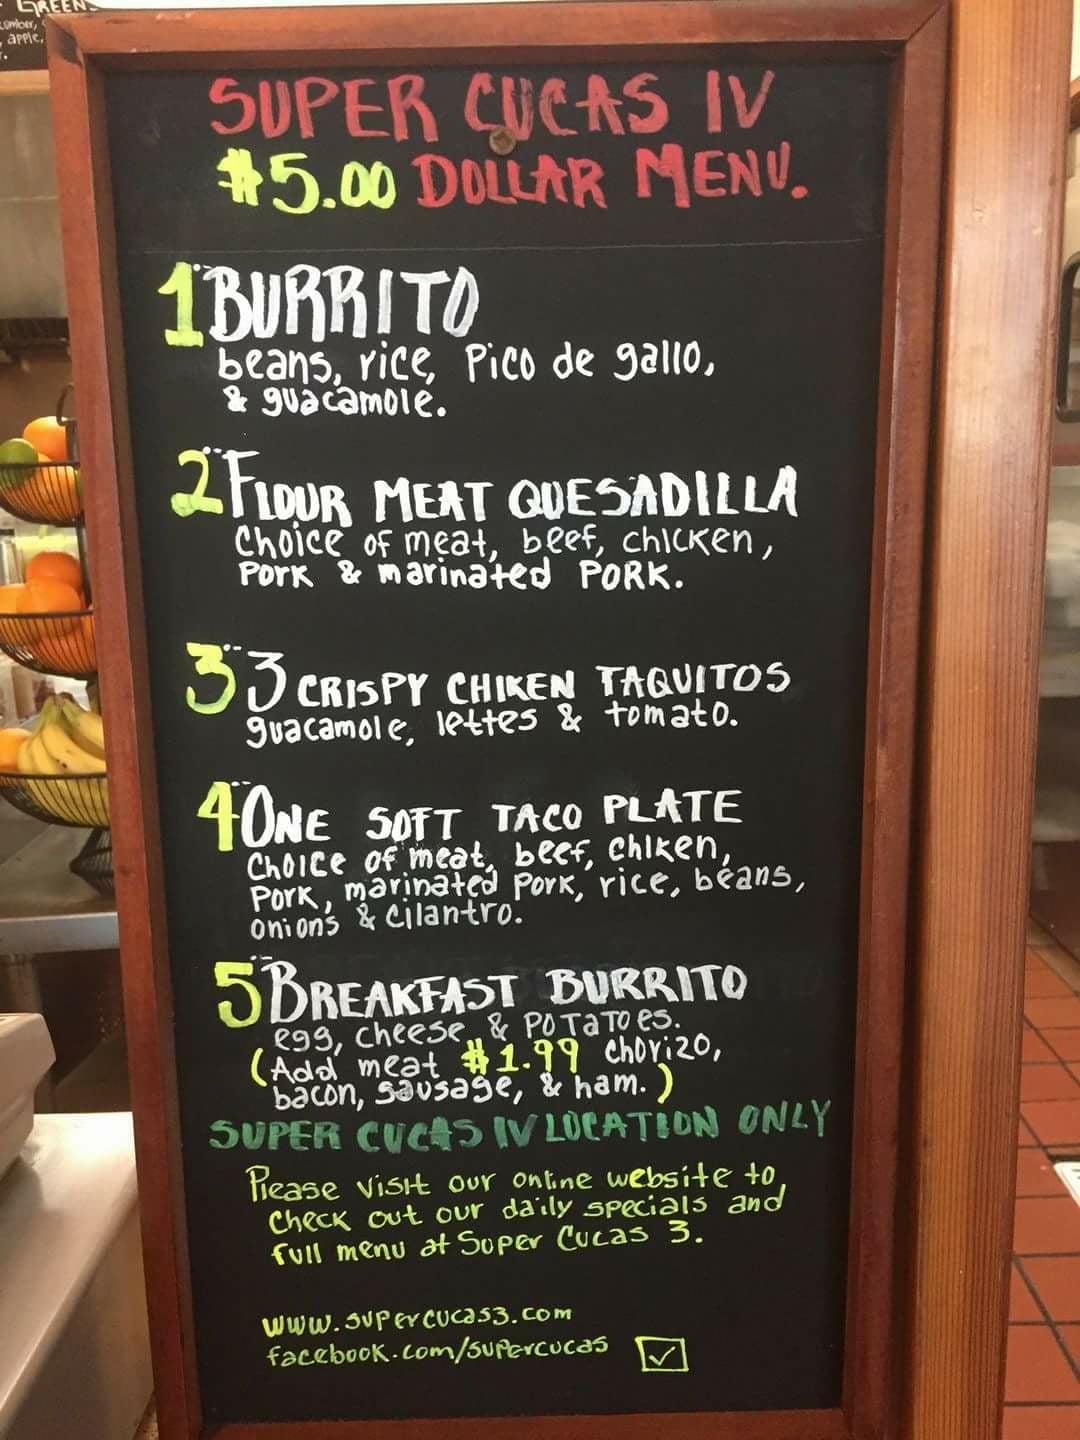 GREENS
apple,
SUPER CUCAS IV
$5.00 DOLLAR MENU.
1 BURRITO
beans, rice, Pico de gallo,
& guacamole.
2 FLOUR MEAT QUESADILLA
Choice of meat, beef, chicken,
Pork & marinated PORK.
3 3 CRISPY CHIKEN TAQUITOS
guacamole, lettes & tomato.
4 ONE SOFT TACO PLATE
Choice of meat, beef, chiken,
Pork, marinated Pork, rice, beans,
onions & cilantro.
5 BREAKFAST BURRITO
egg, cheese, & POTATOES.
(Add meat $1.99 chorizo,
bacon, sausage, & ham.)
SUPER CUCAS IV LOCATION ONLY
Please visit our online website to,
Check out our daily specials and
full menu at Super Cucas 3.
www.supercucas3.com
facebook.com/supercucas